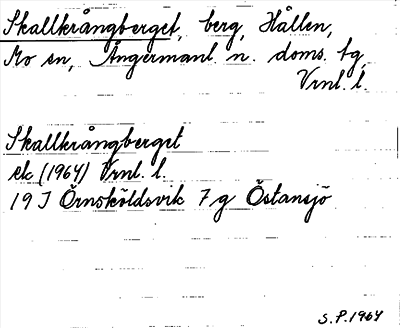 Skallkrångberget, berg, Hållen,
Mo sn, Ångermanl. n. doms. tg,
Vrnl. l.
Skallkrångberget
ek (1964) Vrnl. l.
19 I Örnsköldsvik 7 g Östansjö
S.P. 1964